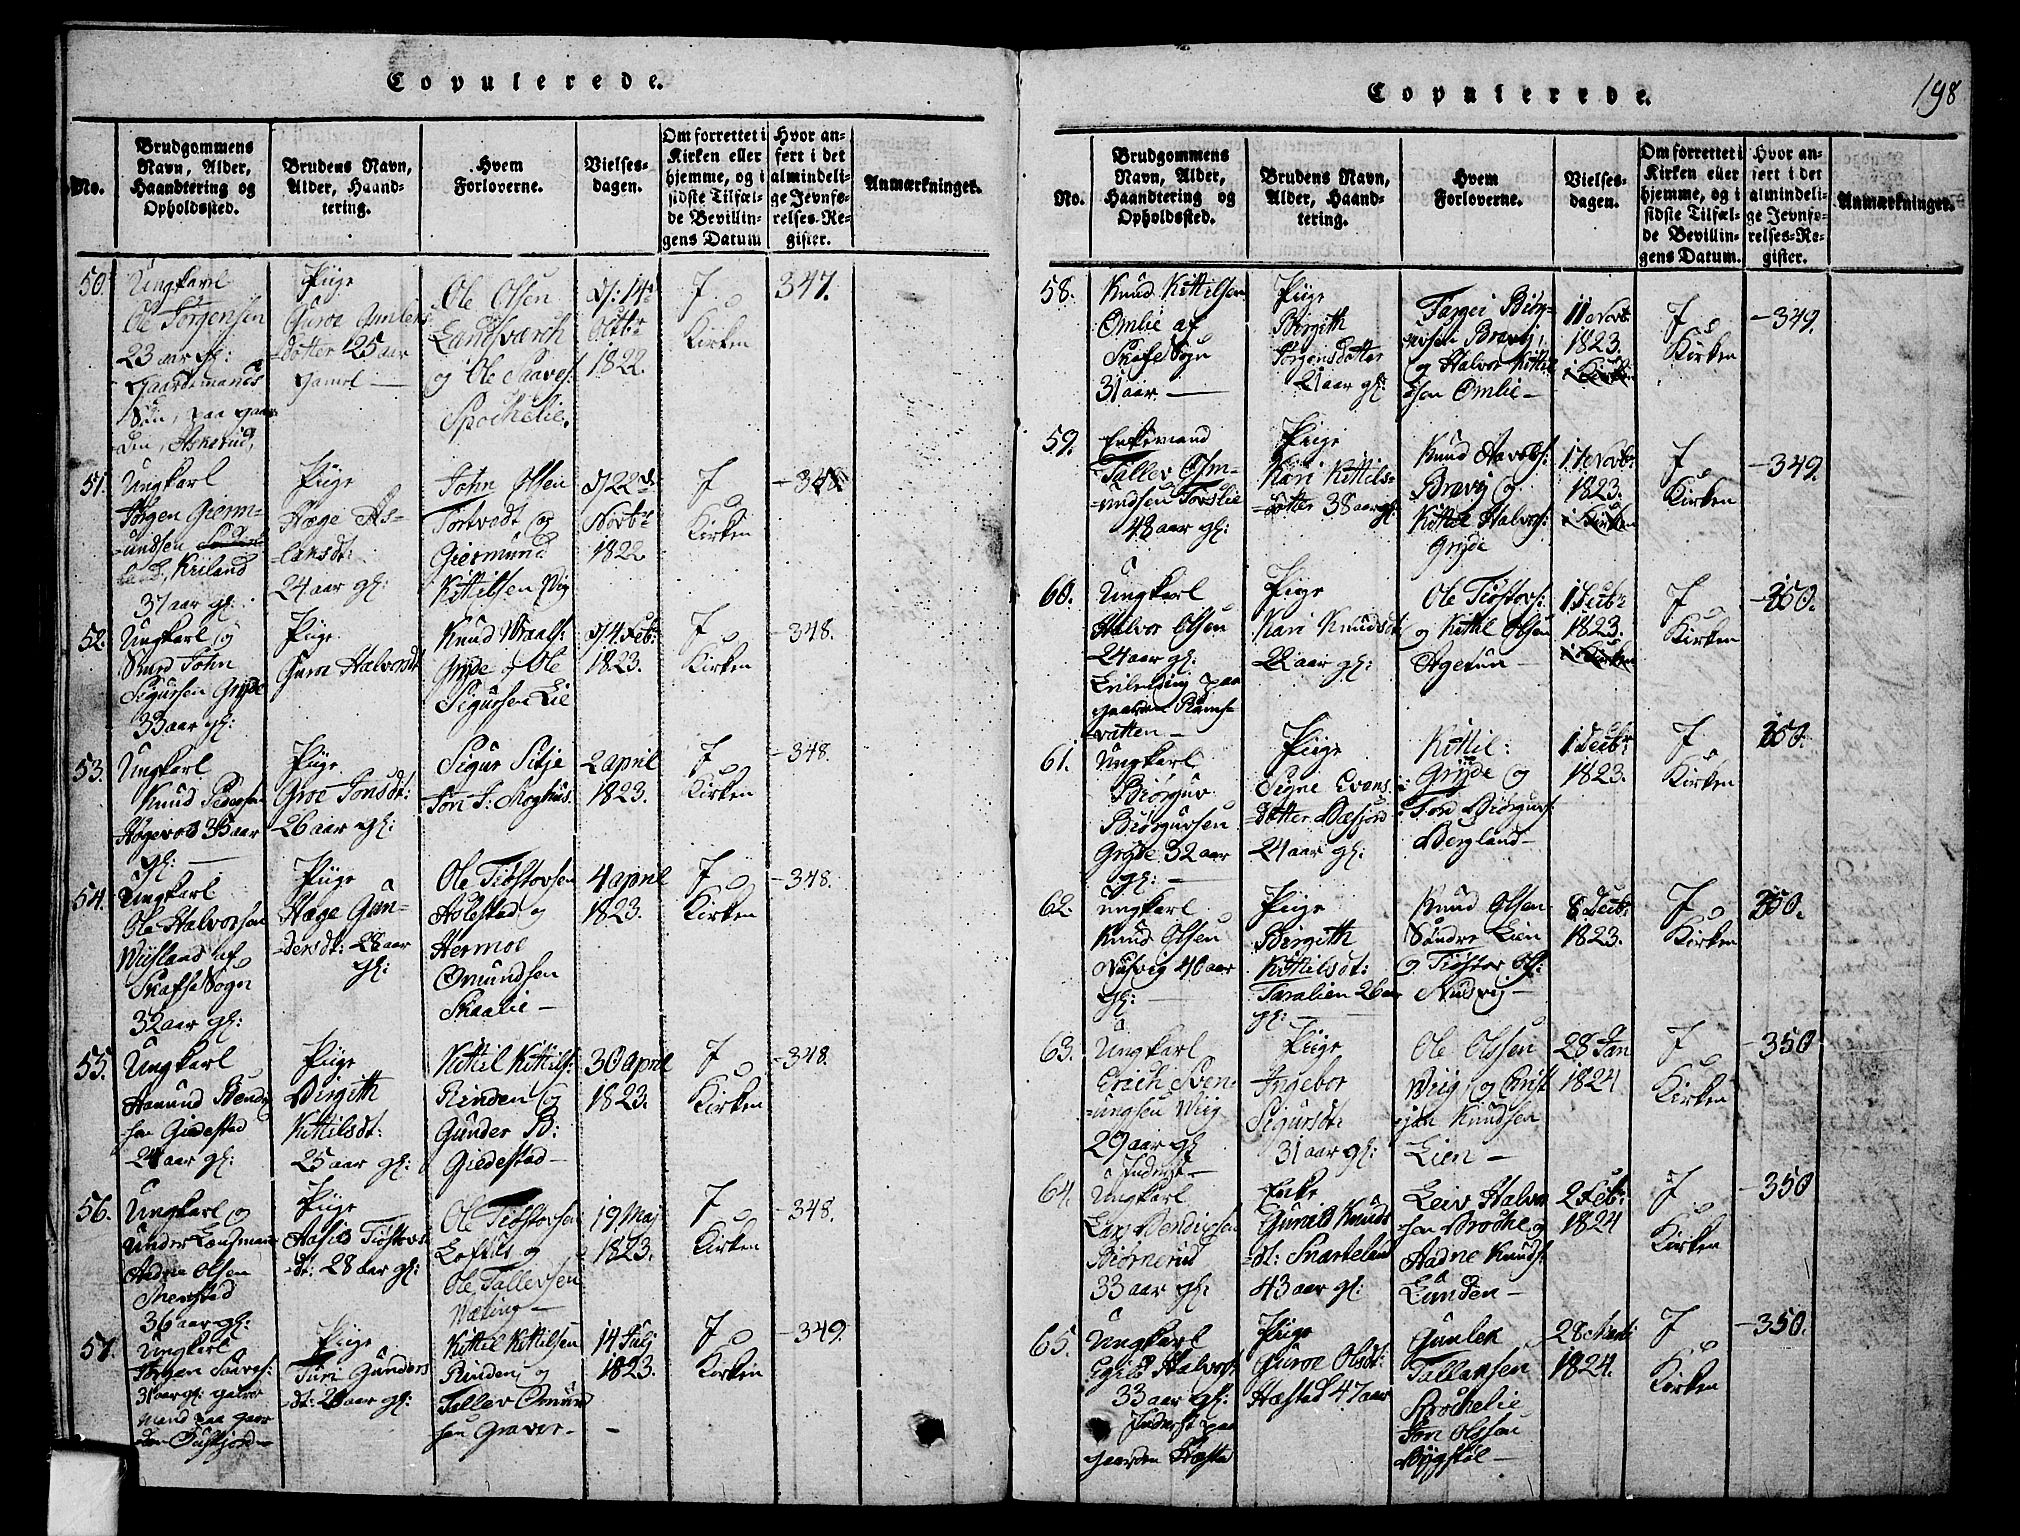 Copulerede.
No.
Brudgommens
Navn, Alder,
Haandtering og
Opholdssted.
Brudens Navn,
Alder, Haand-
tering.
Hvem
Forloverne.
Vielses-
dagen.
Om forrettet i
Kirken eller
hjemme, og i
sidste Tilfæl-
de Bevillin-
gens Datum
Hvor an-
ført i det
almindeli-
ge Jevnfø-
relses-Re-
gister.
Anmærkninger.
50.
Ungkarl
Ole Jörgensen
23 aar gl:
Gaardemands
Sön, paa gaar
den, Askerud,
Piige
Guroe
dotter 25 aar
gamel —
Ole Olsen
Landsværch
og Ole Saaves:
Spockelie.
d: 14de
Octbr
1822.
J
Kirken
347.
51.
Ungkarl
Jörgen Gierm-
undsen
Kriland
37 aar gl:
Piige
Hæge As-
lansdt:
24 aar gl:
John Olsen
Tortvedt og
Giermund
Kittilsen Viig
d 22de
Novbr
1822
J
Kirken
52.
Ungkarl og
John
Sigursen Gryde
33 aar gl:
Piige
Guroe Halvorsdt
Knud
Gryde og Ole
Sigursen Lie
d 4 Febr:
1823.
J
Kirken
- 348.
53.
Ungkarl
Knud Pedersen
Högevold 35 aar
gl: —
Piige
Groe Jonsdt:
26 aar gl:
Sigur Sitje
Jon J: Moghus.
2 april
1823.
J
Kirken
- 348.
54.
Ungkarl
Ole Halvorsen
af
Skafse Sogn
32 aar gl:
Piige
Hæge Gun-
dersdt: 28 aar
gl:
Ole Tiöstovsen
Aolestad og
Hermoe
Omundsen
Skaalie —
4 april
1823.
J
Kirken
- 348.
55.
Ungkarl
Aanund Bendic
sen Giedestad
24 aar gl:
Piige
Birgith
Kittilsdt:
25 aar gl:
Kittil Kittils:
Rinden og
Gunder B:
Giedestad —
30 april
1823.
J
Kirken
- 348.
56.
Ungkarl og
Under Lensman
Aadne Olsen
36 aar gl:
Piige
Aasild Tiöstovs
dt: 28 aar gl:
Ole Tiöstovsen
Loftsl: og
Ole Tallevsen
Væting —
19. Maj
1823.
J
Kirken
- 348.
57.
Ungkarl
Jörgen Saaves:
31 aar gl: gaard
mand paa gaar
den
Piige
Turi Gunders
dt: 20 aar gl:
Kittil Kittilsen
Rinden, og
Tallev Omund
sen Graver —
14 Julj
1823.
J
Kirken
- 349.
Copulerede.
198
No.
Brudgommens
Navn, Alder,
Haandtering og
Opholdssted.
Brudens Navn,
Alder, Haand-
tering.
Hvem
Forloverne.
Vielses-
dagen.
Om forrettet i
Kirken eller
hjemme, og i
sidste Tilfæl-
de Bevillin-
gens Datum.
Hvor an-
ført i det
almindeli-
ge Jevnfø-
relses-Re-
gister.
Anmærkninger.
58.
Knud Kittilsen
Omlie af
Skafse Sogn
31 aar —
Piige
Birgith
Jörgensdotter
21 aar gl:
Targei Biör-
nsen Bravij,
og Halvor Kittil
sen Omlie —
11 Novbr
1823.
i Kirken
J
Kirken
- 349.
59.
Enkemand
Tallev Osm-
undsen Torslie
48 aar gl:
Piige
Kari Kittils-
dotter 38 aar gl
Knud Aavols:
Bravij og
Kittil Halvors:
Gryde
17 Novbr
1823.
i Kirken
J
Kirken
- 349.
60.
Ungkarl
Halvor Olsen
24 aar gl:
Leilending paa
gaarden Rams-
vatten —
Piige
Kari Knudsdt
22 aar gl:
Ole Tiöstovs:
og Kittil Olsen
Agetun —
1 Decbr
1823.
i Kirken
J
Kirken
- 350.
61.
Ungkarl
Biörguv
Biörguvsen
Gryde 32 aar
gl: —
Piige
Signe Evens
dotter
24 aar gl:
Kittil:
Gryde og
Jon Biörguvs:
Bergland —
1 Decbr:
1823.
J
Kirken
350.
62.
Ungkarl
Knud Olsen
Nusvig 40 aar
gl: —
Piige
Birgith
Kittilsdt:
Taralien 26 aar
gl: —
Knud Olsen
Söndre Lien
og Tiöstov Ols:
Nudvig —
8 Decbr:
1823.
J
Kirken
350.
63.
Ungkarl
Erich Sven-
ungsen Viig
29 aar gl
Inderst —
Piige
Ingebor
Sigursdt:
31 aar gl:
Ole Olssen
Viig, og Christ
jan Knudsen
Lien —
28 Jan
1824
J
Kirken
- 350
64.
Ungkarl
Lars Bendicsen
Biörnerud
33 aar gl:
Enke
Gunild Knuds
dt: Snarteland
43 aar gl:
Leiv Halvor
sen Brocke og
Aadne Knuds:
Lunden —
2 Febr:
1824
J
Kirken
- 350
65.
Ungkarl
Egild Halvors:
33 aar gl:
Inderst paa
gaarden Hæstad
Piige
Guroe Olsdt:
Hæstad 47 aar
Gunlek
Tallaksen
Spockelie
Jon Olssen
Bygstöl —
28
1824.
J
Kirken
- 350.